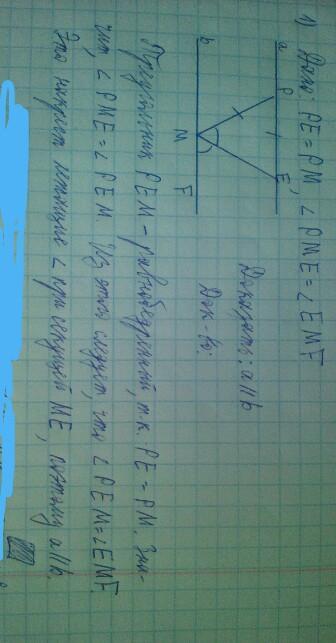 1) Дано: PE = PM, ∠PME = ∠EMF
a P E
Доказать: a || b
b M F
Док-во:
Треугольник PEM - равнобедренный, т.к. PE = PM. Зна-
чит, ∠PME = ∠PEM. Из этого следует, что ∠PEM = ∠EMF.
Это накрест лежащие ∠ при секущей ME, поэтому a || b.